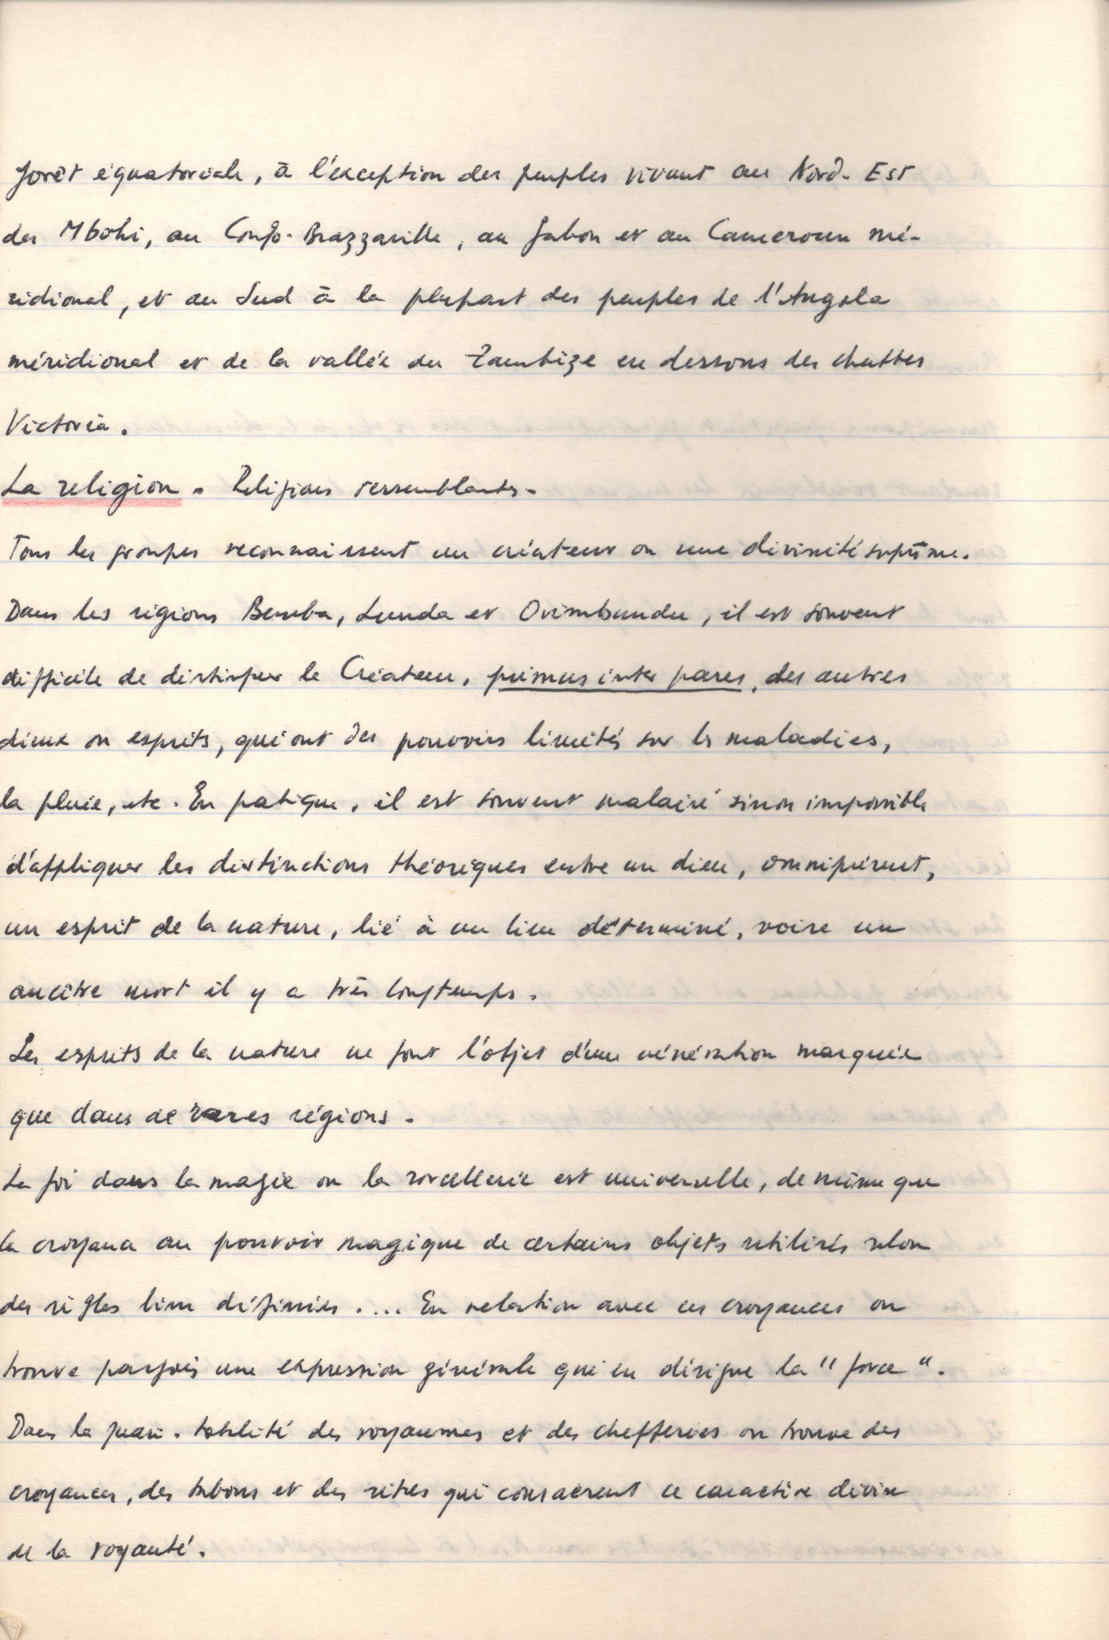 forêt équatoriale, à l'exception des peuples vivant au Nord-Est
des Mbohi, au Congo-Brazzaville, au Gabon et au Cameroun mé-
ridional, et au Sud à la plupart des peuples de l'Angola
méridional et de la vallée du Zambèze en dessous des chuttes
Victoria.
La religion. Religions ressemblantes.
Tous les groupes reconnaissent un créateur ou une divinité suprême.
Dans les régions Bemba, Lunda et Ovimbundu, il est souvent
difficile de distinguer le Créateur, primus inter pares, des autres
dieux ou esprits, qui ont des pouvoirs limités sur les maladies,
la pluie, etc. En patique, il est souvent malaisé sinon impossible
d'appliquer les distinctions théoriques entre un dieu, omniprésent,
un esprit de la nature, lié à un lieu déterminé, voire un
ancêtre mort il y a très longtemps.
Les esprits de la nature ne font l'objet d'une vénération marquée
que dans de rares régions.
La foi dans la magie ou la sorcellerie est universelle, de même que
la croyance au pouvoir magique de certains objets utilisés selon
des règles bien définies. ... En relation avec ces croyances on
trouve parfois une expression générale qui en désigne la "force".
Dans la quasi-totalité des royaumes et des chefferies on trouve des
croyances, des tabous et des rites qui consacrent ce caractère divin
de la royauté.